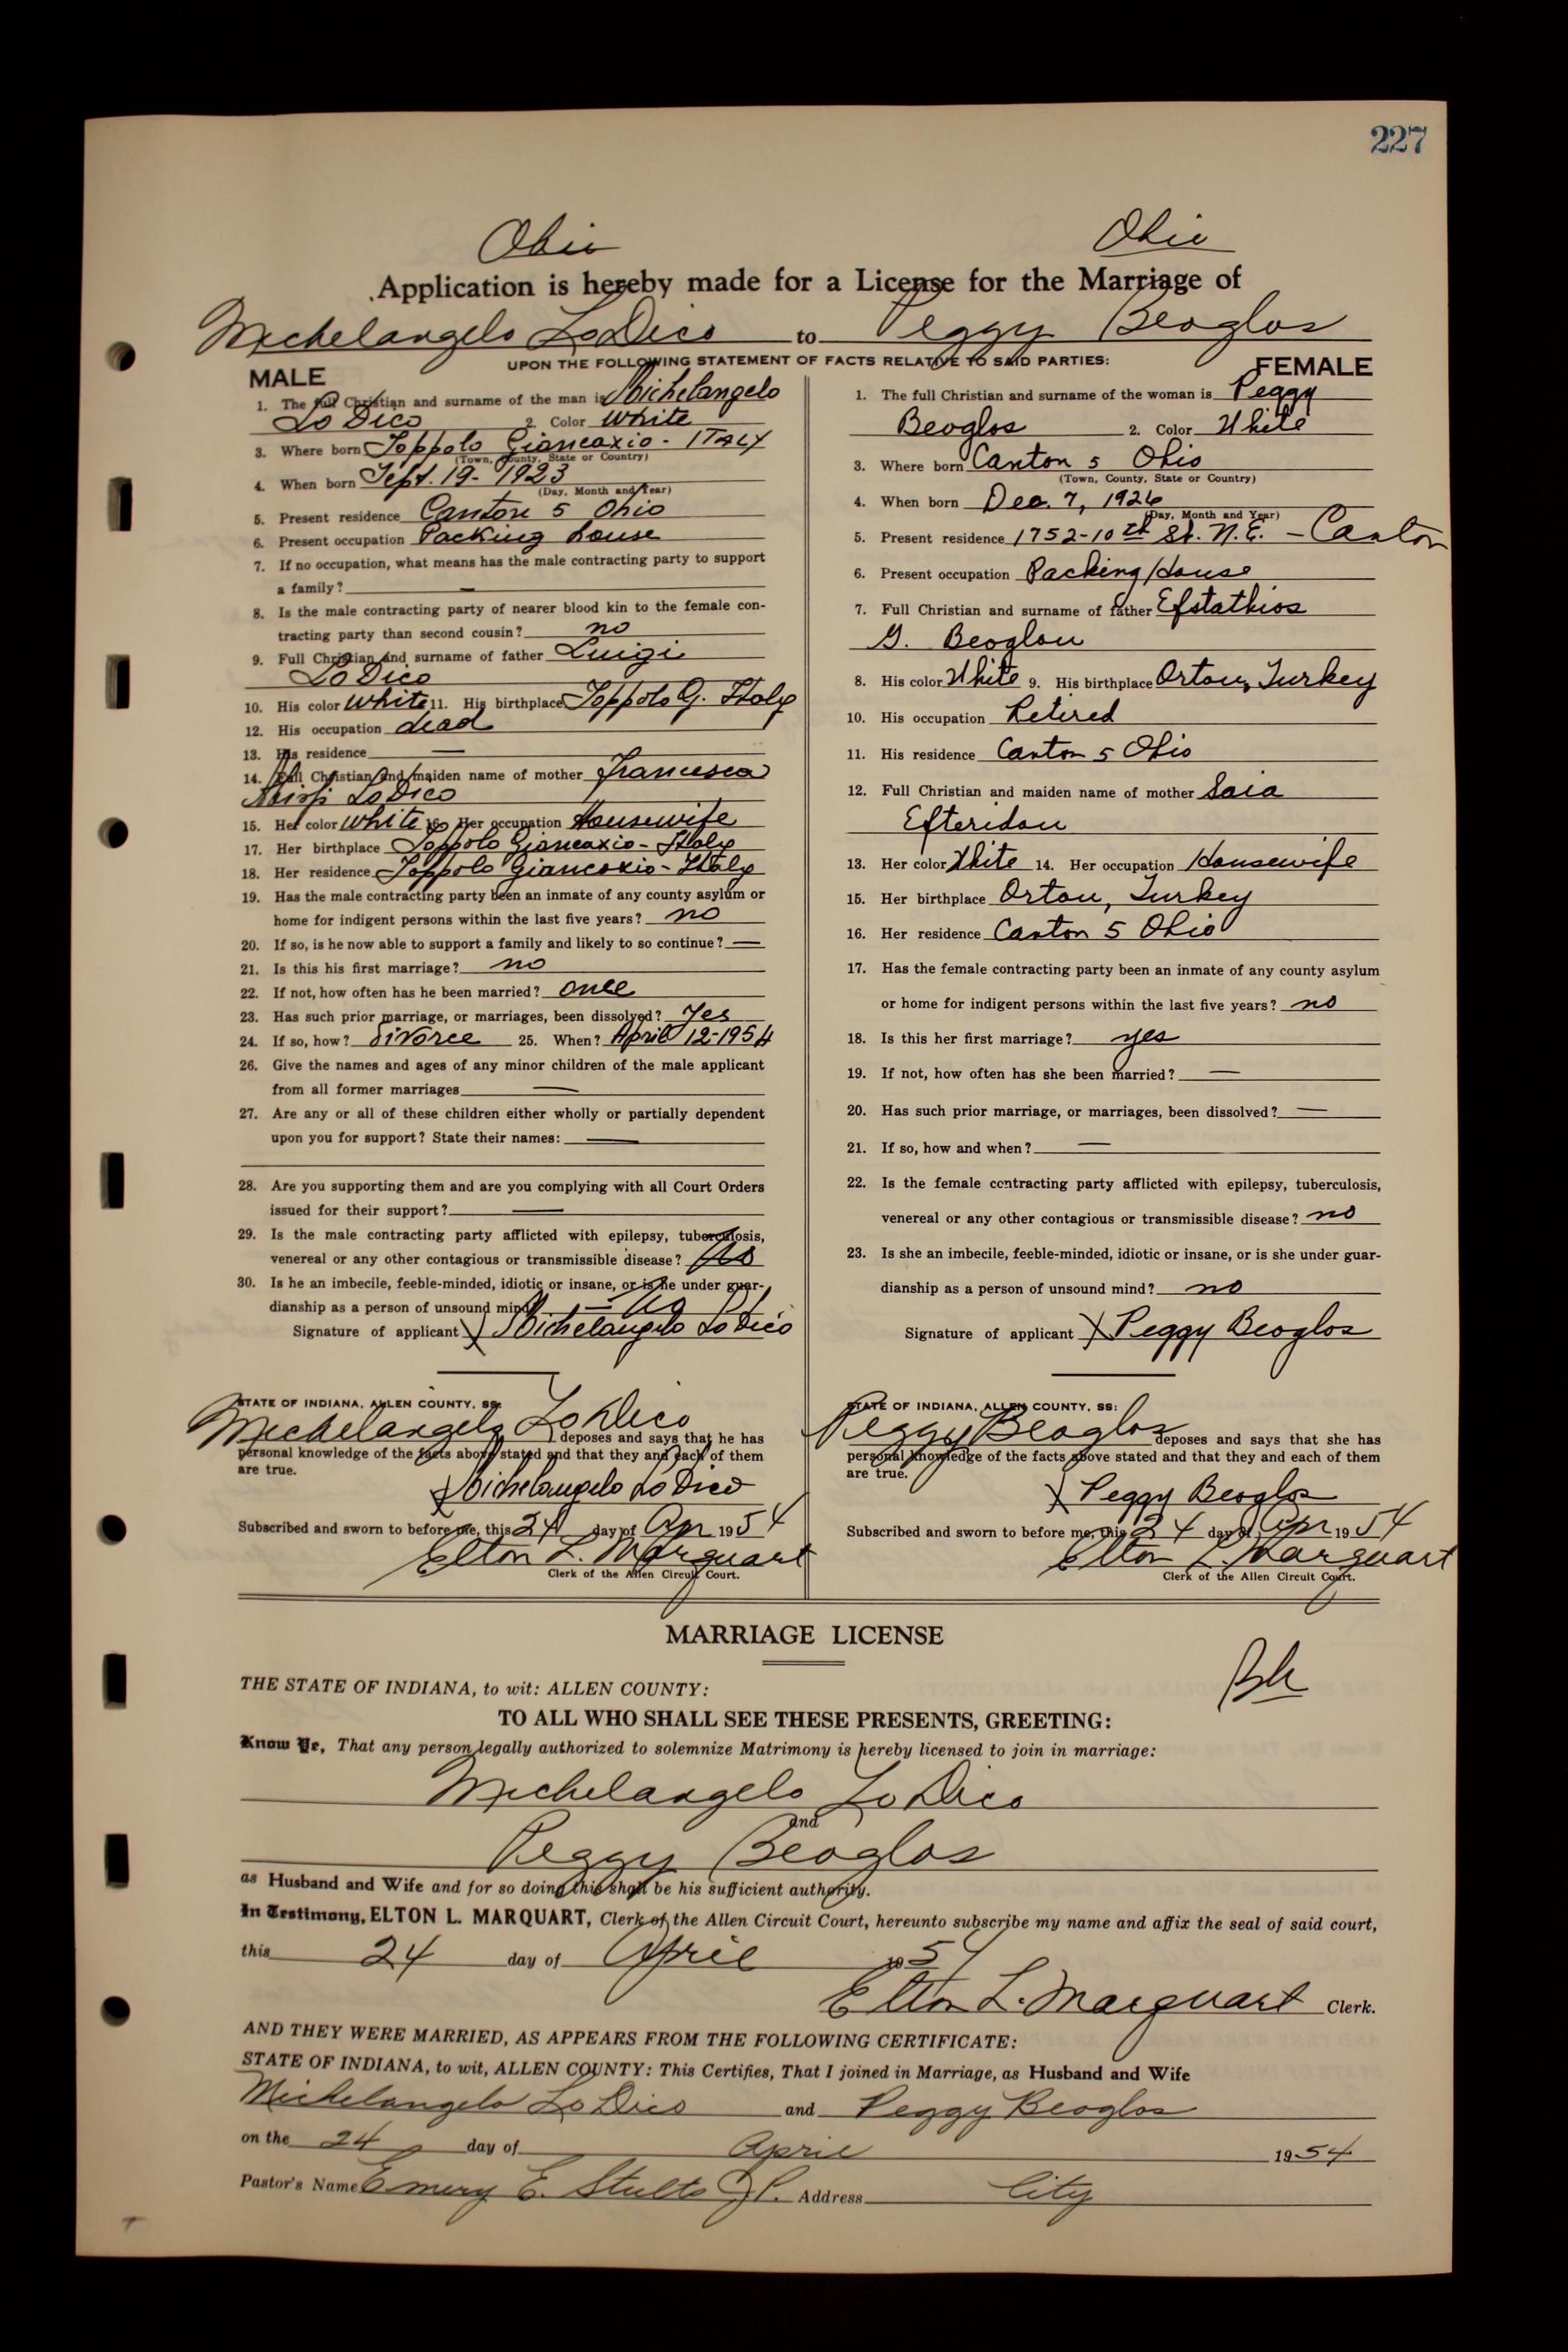 227
Ohio Ohio
Application is hereby made for a License for the Marriage of
Michelangelo LoDico to Peggy Beoglos
UPON THE FOLLOWING STATEMENT OF FACTS RELATIVE TO SAID PARTIES:
MALE
1. The full Christian and surname of the man is Michelangelo
LoDico 2. Color White
3. Where born Joppolo Giancaxio - ITALY
(Town, County, State or Country)
4. When born Sept. 19- 1923
(Day, Month and Year)
5. Present residence Canton 5 Ohio
6. Present occupation Packing house
7. If no occupation, what means has the male contracting party to support
a family? —
8. Is the male contracting party of nearer blood kin to the female con-
tracting party than second cousin? no
9. Full Christian and surname of father Luigi
LoDico
10. His color white 11. His birthplace Joppolo G. Italy
12. His occupation dead
13. His residence —
14. Full Christian and maiden name of mother Francesca
LoDico
15. Her color white 16. Her occupation Housewife
17. Her birthplace Joppolo Giancaxio - Italy
18. Her residence Joppolo Giancaxio - Italy
19. Has the male contracting party been an inmate of any county asylum or
home for indigent persons within the last five years? no
20. If so, is he now able to support a family and likely to so continue? —
21. Is this his first marriage? no
22. If not, how often has he been married? once
23. Has such prior marriage, or marriages, been dissolved? Yes
24. If so, how? divorce 25. When? April 12-1954
26. Give the names and ages of any minor children of the male applicant
from all former marriages —
27. Are any or all of these children either wholly or partially dependent
upon you for support? State their names: —
28. Are you supporting them and are you complying with all Court Orders
issued for their support? —
29. Is the male contracting party afflicted with epilepsy, tuberculosis,
venereal or any other contagious or transmissible disease? No
30. Is he an imbecile, feeble-minded, idiotic or insane, or is he under guar-
dianship as a person of unsound mind? — No
Signature of applicant X Michelangelo LoDico
STATE OF INDIANA, ALLEN COUNTY, SS:
Michelangelo LoDico deposes and says that he has
personal knowledge of the facts above stated and that they and each of them
are true.
X Michelangelo LoDico
Subscribed and sworn to before me, this 24 day of Apr 1954
Elton L. Marquart
Clerk of the Allen Circuit Court.
FEMALE
1. The full Christian and surname of the woman is Peggy
Beoglos 2. Color White
3. Where born Canton 5 Ohio
(Town, County, State or Country)
4. When born Dec. 7, 1926
(Day, Month and Year)
5. Present residence 1752-10th St. N.E. - Canton
6. Present occupation Packing House
7. Full Christian and surname of father Efstathios
G. Beoglou
8. His color White 9. His birthplace Ortou, Turkey
10. His occupation Retired
11. His residence Canton 5 Ohio
12. Full Christian and maiden name of mother Saia
Efteridou
13. Her color White 14. Her occupation Housewife
15. Her birthplace Ortou, Turkey
16. Her residence Canton 5 Ohio
17. Has the female contracting party been an inmate of any county asylum
or home for indigent persons within the last five years? no
18. Is this her first marriage? yes
19. If not, how often has she been married? —
20. Has such prior marriage, or marriages, been dissolved? —
21. If so, how and when? —
22. Is the female contracting party afflicted with epilepsy, tuberculosis,
venereal or any other contagious or transmissible disease? no
23. Is she an imbecile, feeble-minded, idiotic or insane, or is she under guar-
dianship as a person of unsound mind? no
Signature of applicant X Peggy Beoglos
STATE OF INDIANA, ALLEN COUNTY, SS:
Peggy Beoglos deposes and says that she has
personal knowledge of the facts above stated and that they and each of them
are true.
X Peggy Beoglos
Subscribed and sworn to before me, this 24 day of Apr 1954
Elton L. Marquart
Clerk of the Allen Circuit Court.
MARRIAGE LICENSE
THE STATE OF INDIANA, to wit: ALLEN COUNTY:
TO ALL WHO SHALL SEE THESE PRESENTS, GREETING:
Know Ye, That any person legally authorized to solemnize Matrimony is hereby licensed to join in marriage:
Michelangelo LoDico
and
Peggy Beoglos
as Husband and Wife and for so doing this shall be his sufficient authority.
In Testimony, ELTON L. MARQUART, Clerk of the Allen Circuit Court, hereunto subscribe my name and affix the seal of said court,
this 24 day of April 1954
Elton L. Marquart Clerk.
AND THEY WERE MARRIED, AS APPEARS FROM THE FOLLOWING CERTIFICATE:
STATE OF INDIANA, to wit, ALLEN COUNTY: This Certifies, That I joined in Marriage, as Husband and Wife
Michelangelo LoDico and Peggy Beoglos
on the 24 day of April 1954
Pastor's Name Emery E. Stults J.P. Address City